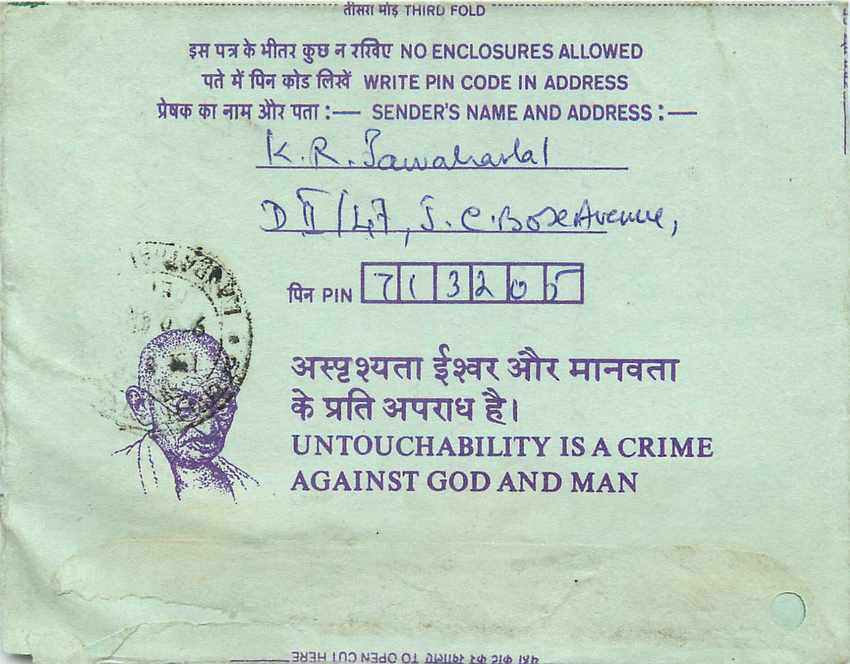 तीसरा मोड़ THIRD FOLD
इस पत्र के भीतर कुछ न रखिए NO ENCLOSURES ALLOWED
पते में पिन कोड लिखें WRITE PIN CODE IN ADDRESS
प्रेषक का नाम और पता :— SENDER'S NAME AND ADDRESS :—
K. R. Jawaharlal
D II/47, J. C. Bose Avenue,
पिन PIN 713205
अस्पृश्यता ईश्वर और मानवता
के प्रति अपराध है।
UNTOUCHABILITY IS A CRIME
AGAINST GOD AND MAN
TO OPEN CUT HERE